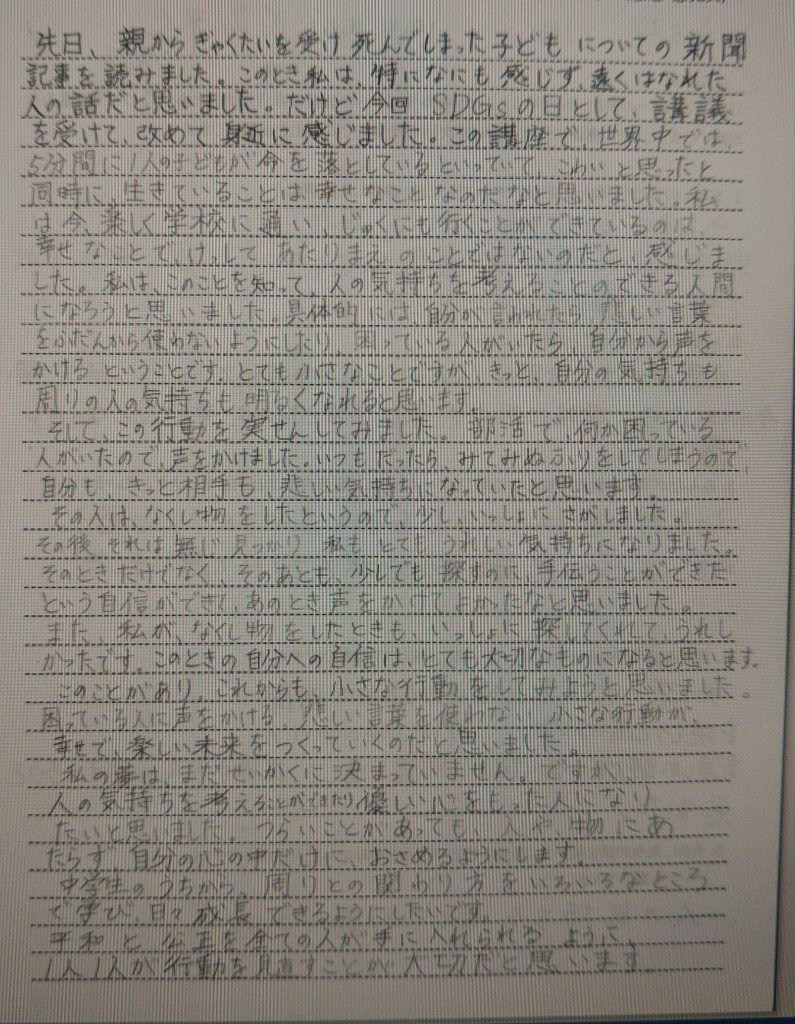 先日、親からぎゃくたいを受け死んでしまった子どもについての新聞
記事を読みました。このとき私は、特になにも感じず、遠くはなれた
人の話だと思いました。だけど今回SDGsの日として、講議
を受けて、改めて身近に感じました。この講座で、世界中では、
5分間に1人の子どもが命を落としているといっていて、こわいと思ったと
同時に、生きていることは幸せなことなのだなと思いました。私
は今、楽しく学校に通い、じゅくにも行くことができているのは、
幸せなことで、けっしてあたりまえのことではないのだと、感じま
した。私は、このことを知って、人の気持ちを考えることのできる人間
になろうと思いました。具体的には、自分が言われたら悲しい言葉
をふだんから使わないようにしたり、困っている人がいたら、自分から声を
かけるということです。とても小さなことですが、きっと、自分の気持ちも
周りの人の気持ちも明るくなれると思います。
そして、この行動を実せんしてみました。部活で、何か困っている
人がいたので、声をかけました。いつもだったら、みてみぬふりをしてしまうので、
自分も、きっと相手も、悲しい気持ちになっていたと思います。
その人は、なくし物をしたというので、少し、いっしょにさがしました。
その後、それは無じ見つかり、私もとてもうれしい気持ちになりました。
そのときだけでなく、そのあとも、少しでも探すのに、手伝うことができた
という自信ができて、あのとき声をかけてよかったなと思いました。
また、私が、なくし物をしたときも、いっしょに探してくれて、うれし
かったです。このときの自分への自信は、とても大切なものになると思います。
このことがあり、これからも、小さな行動をしてみようと思いました。
困っている人に声をかける、悲しい言葉を使わない、小さな行動が、
幸せで、楽しい未来をつくっていくのだと思いました。
私の夢は、まだせいかくに決まっていません。ですが、
人の気持ちを考えることができたり優しい心をもった人になり
たいと思いました。つらいことがあっても、人や、物にあ
たらず、自分の心の中だけに、おさめるようにします。
中学生のうちから、周りとの関わり方をいろいろなところ
で学び、日々成長できるようにしたいです。
平和と公正を全ての人が手に入れられるように、
1人1人が行動を見直すことが大切だと思います。